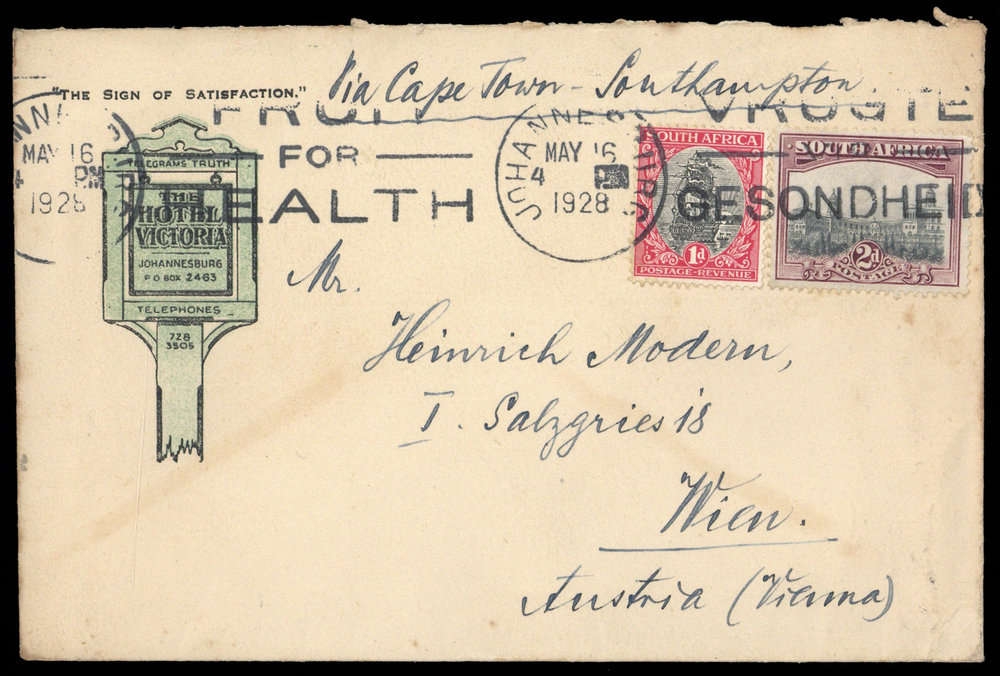 Via Cape Town - Southampton
"THE SIGN OF SATISFACTION."
FRUIT VRUGTE
FOR
HEALTH GESONDHEID
JOHANNESBURG
MAY 16
4 PM
1928
JOHANNESBURG
MAY 16
4
1928
TELEGRAMS TRUTH
THE
HOTEL
VICTORIA
JOHANNESBURG
P O BOX 2463
TELEPHONES
728
3505
SOUTH AFRICA
1d
POSTAGE-REVENUE
SOUTH AFRICA
2d
POSTAGE
Mr.
Heinrich Modern,
I. Salzgries 18
Wien.
Austria (Vienna)